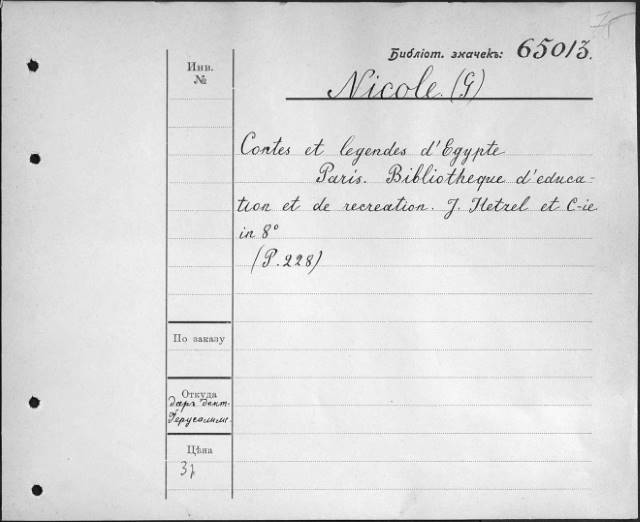 Библіот. значекъ: 65013.
Nicole. (G)
Инв. №
Contes et legendes d'Egypte
Paris. Bibliotheque d'educa-
tion et de recreation. J. Hetzel et C-ie
in 8°
(P. 228)
По заказу
Откуда
даръ
Цѣна